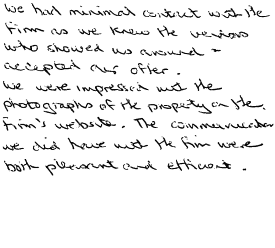 we had minimal contact with the
firm as we knew the vendors
who showed us around &
accepted our offer.
we were impressed with the
photographs of the property on the
firm's website. The communication
we did have with the firm were
both pleasant and efficient.